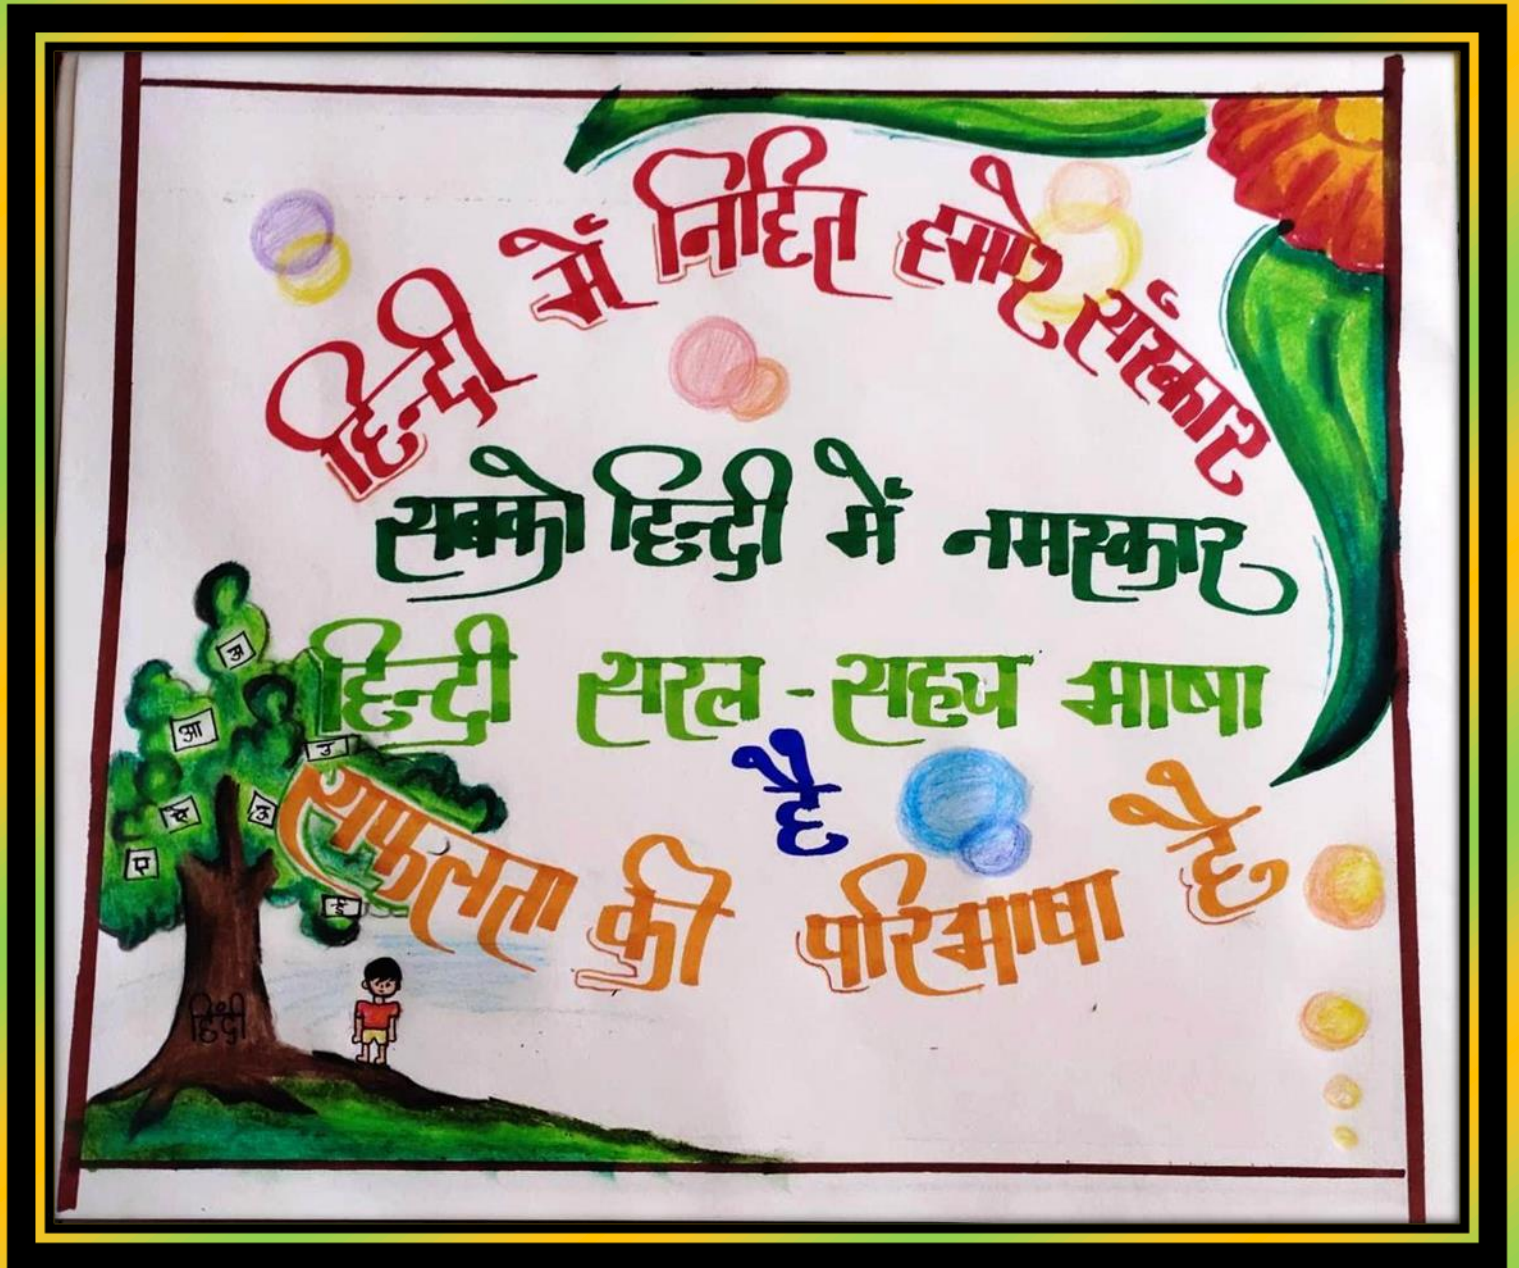 हिन्दी में निहित हमारे संस्कार
सबको हिन्दी में नमस्कार
हिन्दी सरल - सहज भाषा
है
सफलता की परिभाषा है
अ
आ
उ
ऐ
ऊ
ए
ई
हिंदी